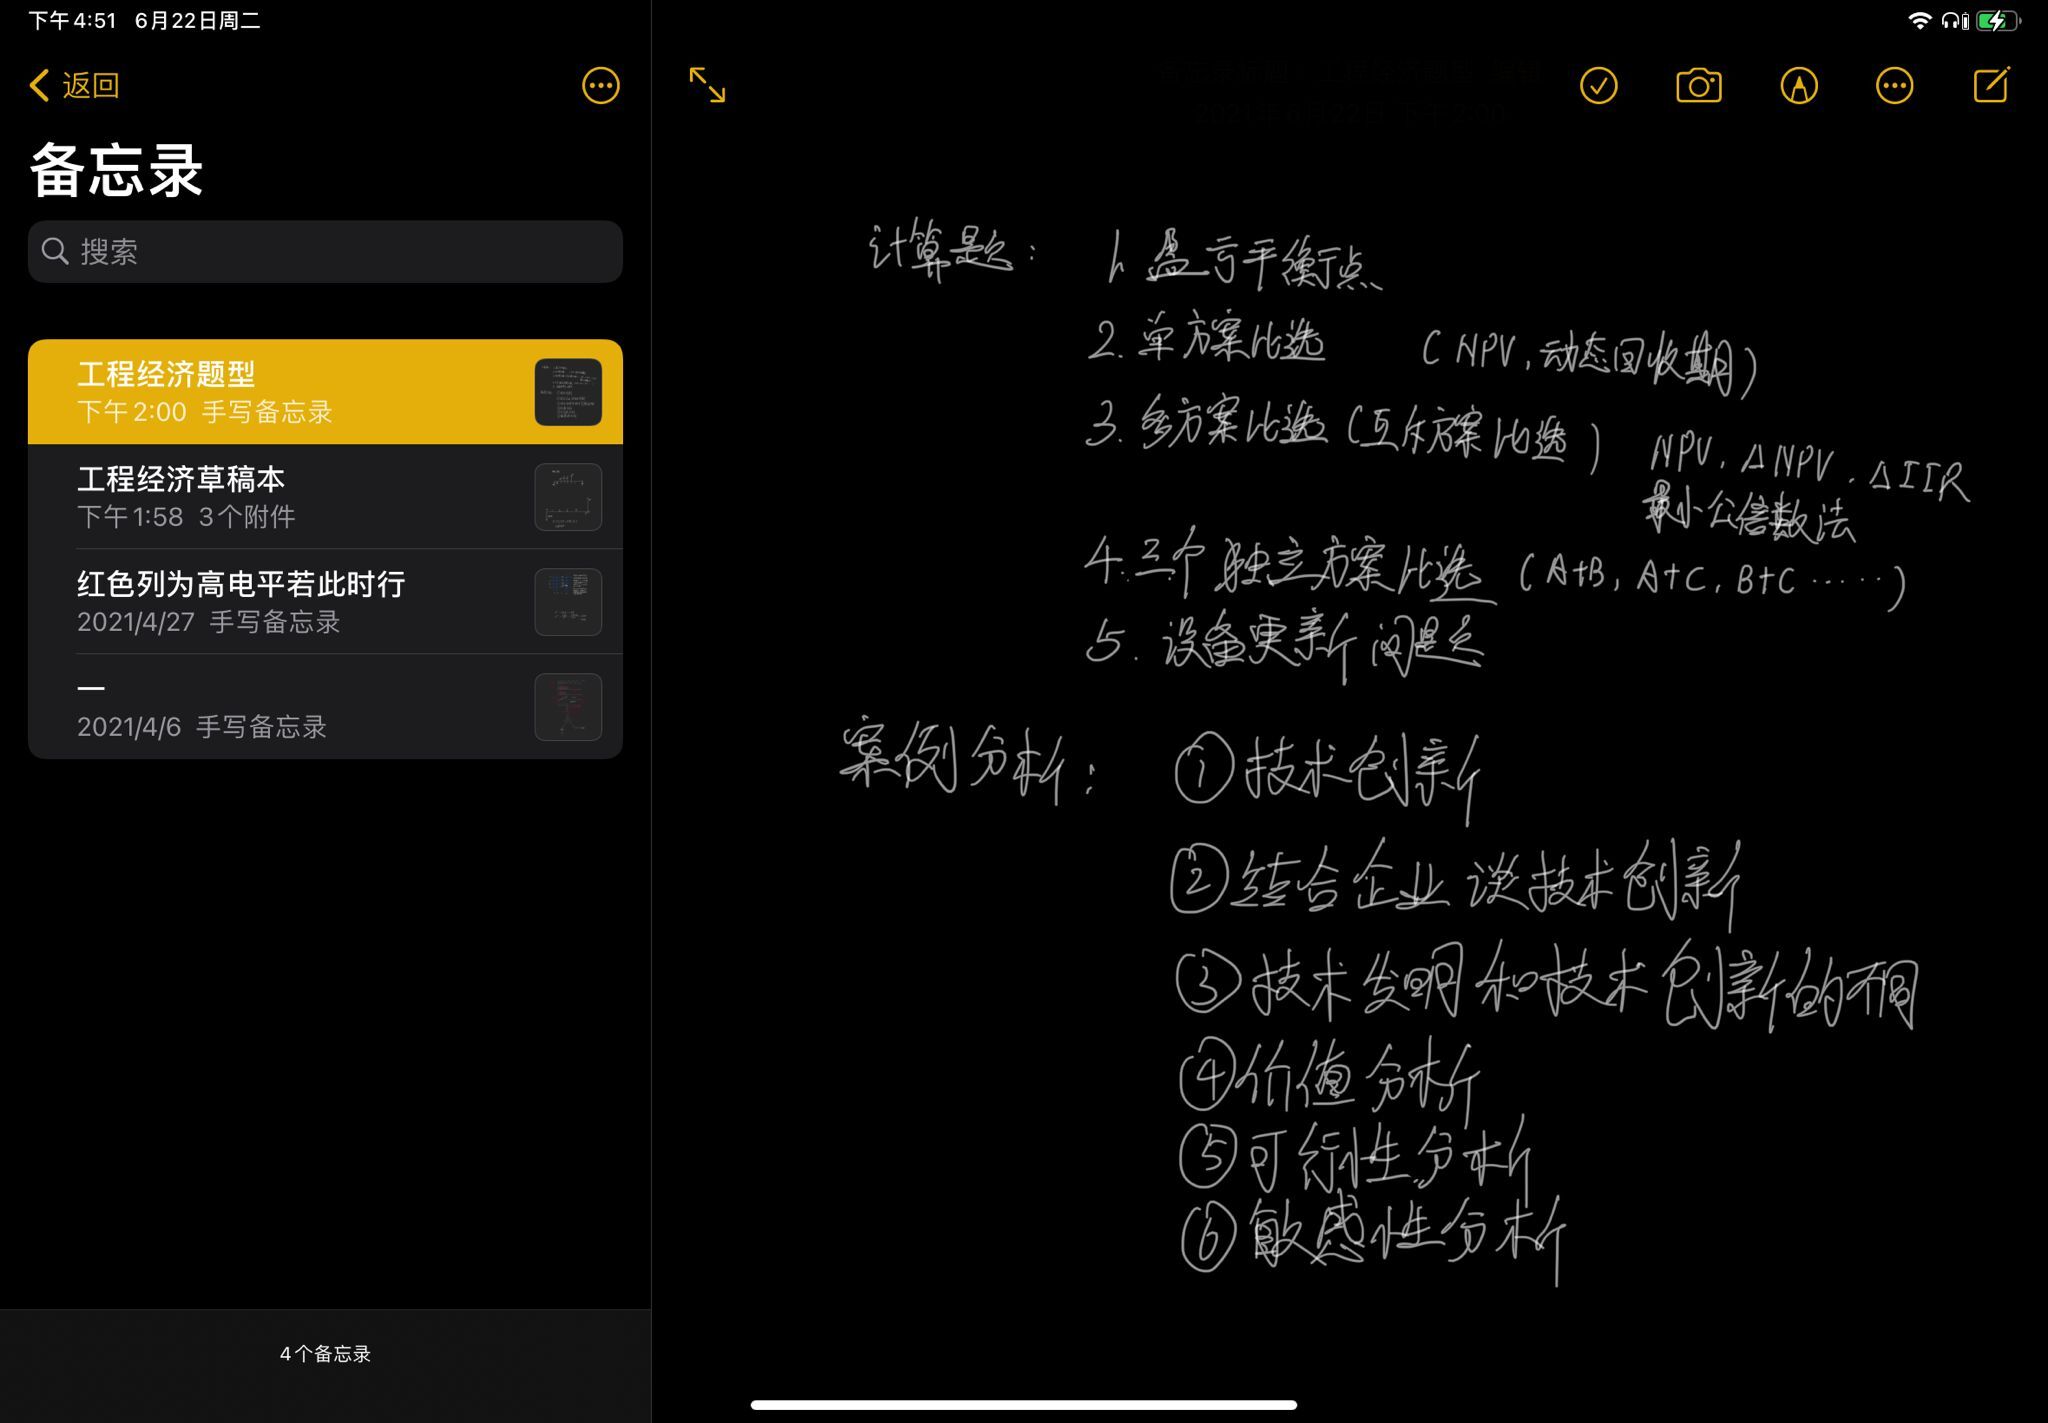 下午4:51 6月22日周二
返回
备忘录
搜索
工程经济题型
下午2:00 手写备忘录
工程经济草稿本
下午1:58 3个附件
红色列为高电平若此时行
2021/4/27 手写备忘录
一
2021/4/6 手写备忘录
4个备忘录
2021年6月22日 下午2:00
计算题： 1. 盈亏平衡点
2. 单方案比选 (NPV, 动态回收期)
3. 多方案比选 (互斥方案比选) NPV. ΔNPV. ΔIIR
最小公倍数法
4. 三个独立方案比选 (A+B, A+C, B+C ······)
5. 设备更新问题
案例分析： ①技术创新
②结合企业谈技术创新
③技术发明和技术创新的不同
④价值分析
⑤可行性分析
⑥敏感性分析